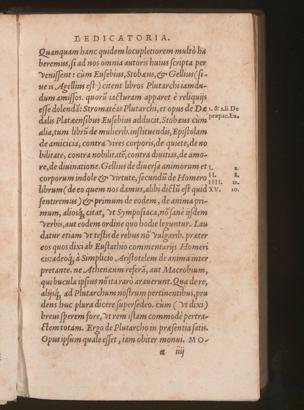 DEDICATORIA.
Quanquam hanc quidem locupletiorem multò ha
beremus, si ad nos omnia autoris huius scripta per
venissent: cùm Eusebius, Stobæus, & Gellius (si-
ue is Agellius est) citent libros Plutarchi iamdu-
dum amissos. quorū iacturam apparet è reliquijs
esse dolendā: Stromateas Plutarchi, et opus de Dæ
1. & 2.li. De
dalis Platæensibus Eusebius adducit. Stobæus cùm
præpar. Eu.
alia, tum librū de mulierib. instituendis, Epistolam
de amicicia, contra vires corporis, de quiete, de no
bilitate, contra nobilitatē, contra diuitias, de amo-
re, de diuinatione. Gellius de diuersa animorum et
I. 1.
corporum indole & virtute, secundū de Homero
II. 8.
librum (de eo quem nos damus, alibi dictū est quid
IIII. 11.
sentiremus) & primum de eodem, de anima pri-
XV. 10.
mum, aliosq́; citat, vt Symposiaca, nō sanè ijsdem
verbis, aut eodem ordine quo hodie leguntur. Lau
datur etiam vt testis de rebus nō vulgarib. præter
eos quos dixi ab Eustathio commentarijs Homeri
à Simplicio Aristotelem de anima inter
pretante. ne Athenæum referā, aut Macrobium,
qui bucula ipsius nō ita rarò arauerunt. Qua de re,
alijsq́; ad Plutarchum nostrum pertinentibus, pru
dens huc plura dicere supersedeo. cùm (vt dixi)
breui sperem fore, vt rem istam commodè pertra-
ctem totam. Ergo de Plutarcho in præsentia satis.
Opus ipsum quale esset, iam obiter monui. MO-
iiij